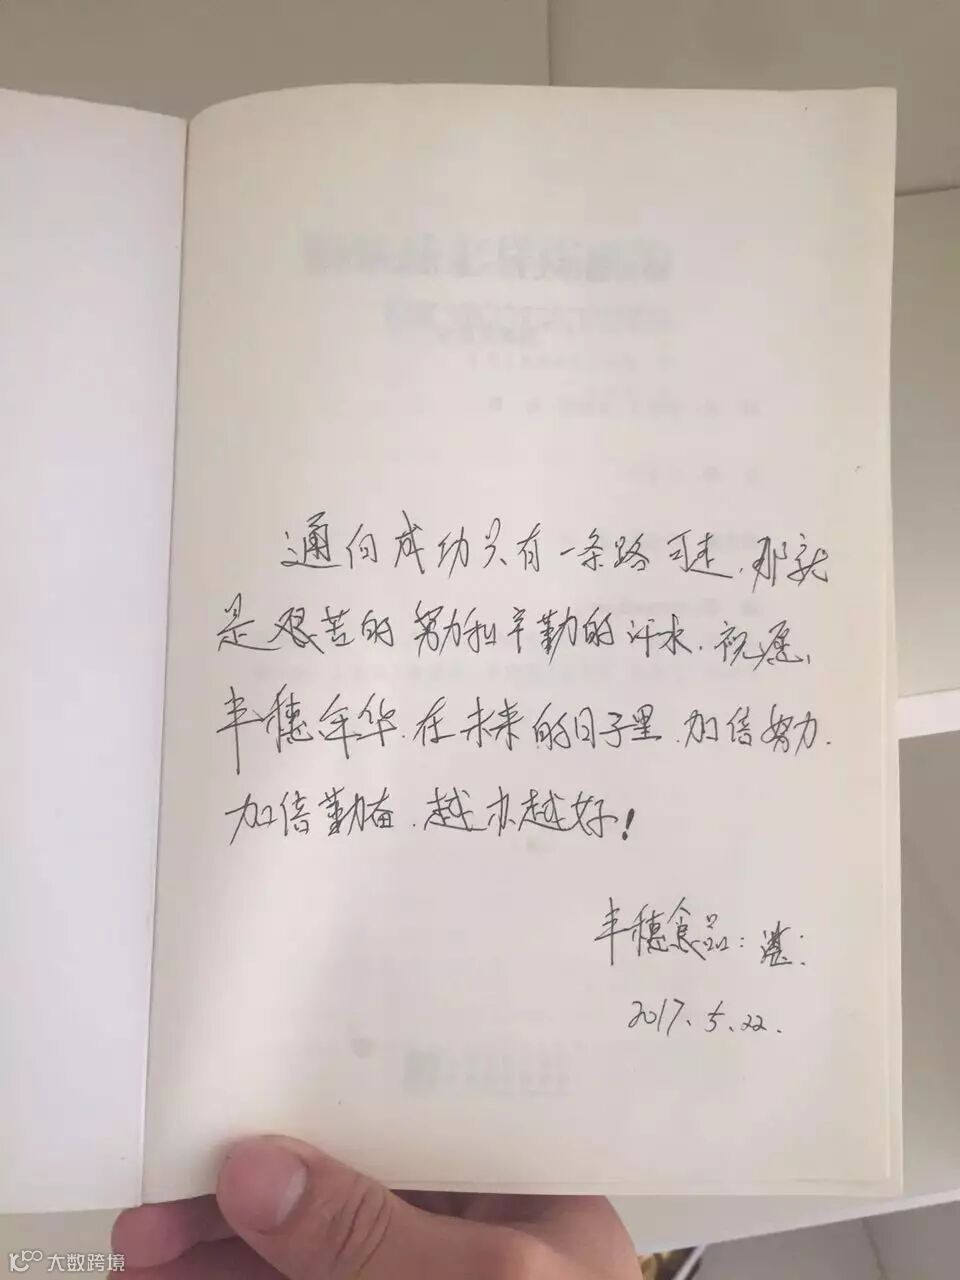 通向成功只有一条路可走,那就
是艰苦的努力和辛勤的汗水.祝愿
丰穗年华.在未来的日子里.加倍努力.
加倍勤奋.越办越好!
丰穗食品:湛:
2017.5.22.
大数跨境